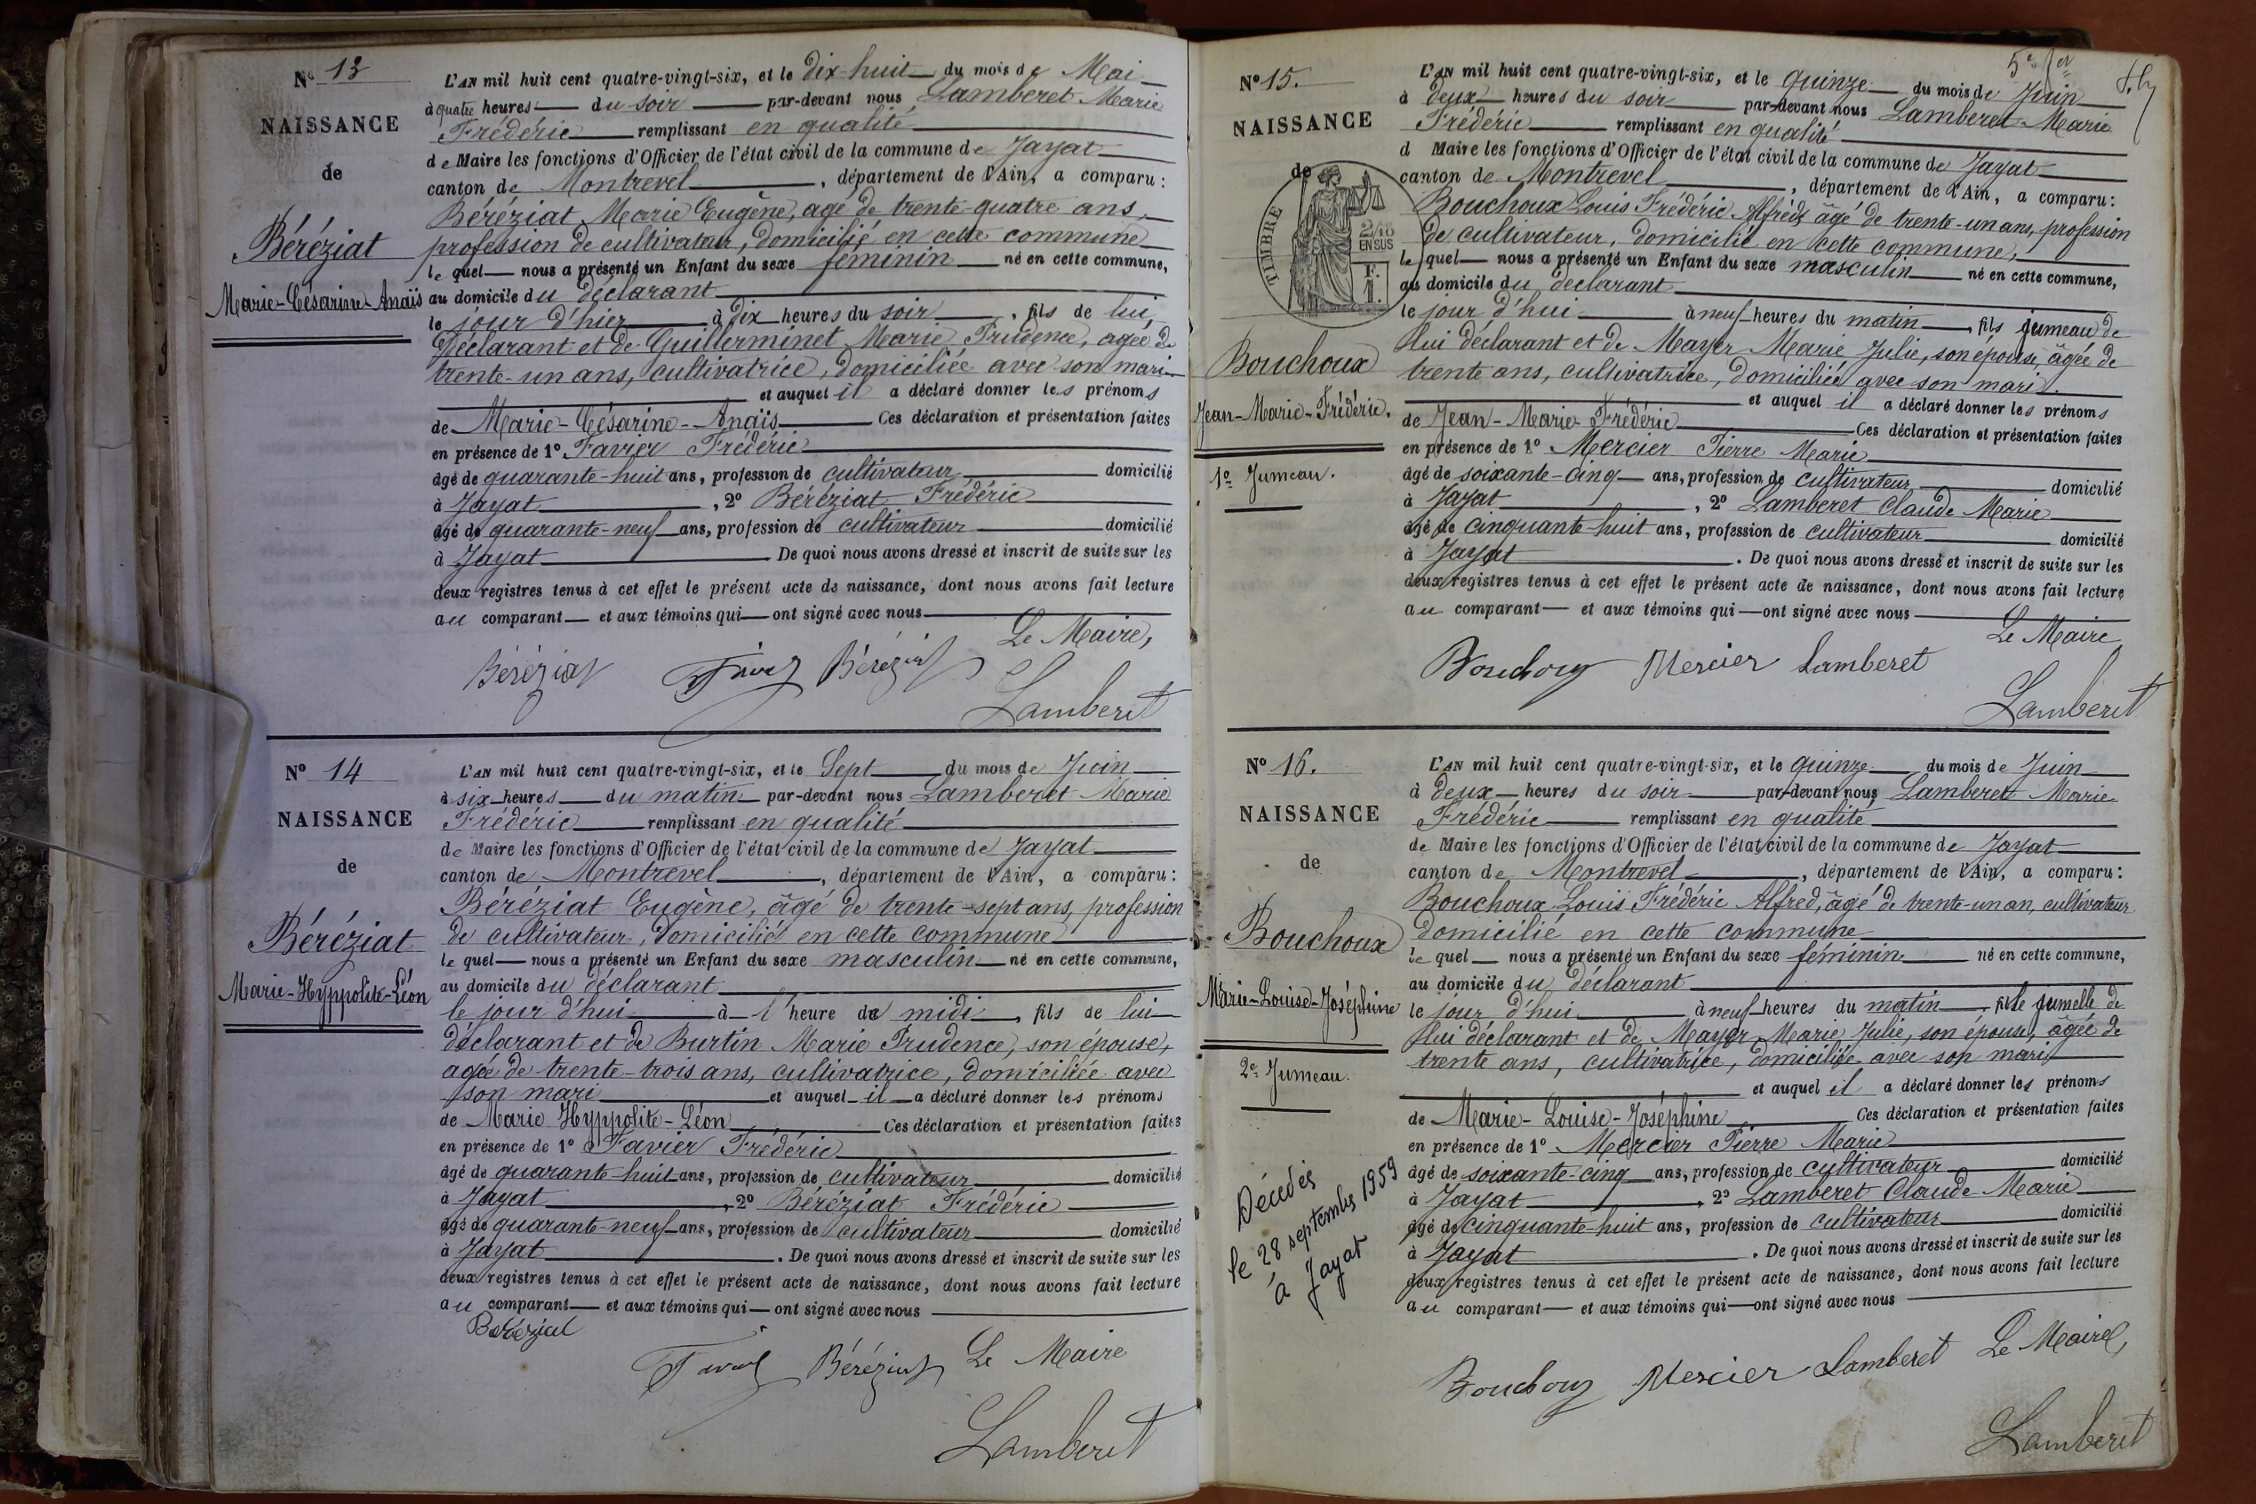 Nº 13
NAISSANCE
de
Béréziat
Marie-Césarine-Anaïs
L'AN mil huit cent quatre-vingt-six, et le dix-huit du mois de Mai
à quatre heures du soir par-devant nous Lamberet Marie
Frédéric remplissant en qualité
de Maire les fonctions d'Officier de l'état civil de la commune de Jayat
canton de Montrevel, département de l'Ain, a comparu :
Béréziat Marie Eugène, agé de trente-quatre ans,
profession de cultivateur, domicilié en cette commune
le quel nous a présenté un Enfant du sexe féminin né en cette commune,
au domicile du déclarant
le jour d'hier à dix heures du soir, fils de lui
déclarant et de Guillerminet Marie Prudence, agée de
trente-un ans, cultivatrice, domiciliée avec son mari
et auquel il a déclaré donner les prénoms
de Marie-Césarine-Anaïs Ces déclaration et présentation faites
en présence de 1º Favier Frédéric
âgé de quarante-huit ans, profession de cultivateur domicilié
à Jayat, 2º Béréziat Frédéric
âgé de quarante-neuf ans, profession de cultivateur domicilié
à Jayat De quoi nous avons dressé et inscrit de suite sur les
deux registres tenus à cet effet le présent acte de naissance, dont nous avons fait lecture
au comparant et aux témoins qui ont signé avec nous
Le Maire,
Béréziat Béréziat
Lamberet
Nº 14
NAISSANCE
de
Béréziat
Marie-Hyppolite-Léon
L'AN mil huit cent quatre-vingt-six, et le Sept du mois de Juin
à six heures du matin par-devant nous Lamberet Marie
Frédéric remplissant en qualité
de Maire les fonctions d'Officier de l'état civil de la commune de Jayat
canton de Montrevel, département de l'Ain, a comparu :
Béréziat Eugène, âgé de trente-sept ans, profession
de cultivateur, domicilié en cette commune
le quel nous a présenté un Enfant du sexe masculin né en cette commune,
au domicile du déclarant
le jour d'hui à l'heure de midi, fils de lui
déclarant et de Burtin Marie Prudence, son épouse,
agée de trente-trois ans, cultivatrice, domiciliée avec
son mari et auquel il a déclaré donner les prénoms
de Marie Hyppolite-Léon Ces déclaration et présentation faites
en présence de 1º Favier Frédéric
âgé de quarante-huit ans, profession de cultivateur domicilié
à Jayat, 2º Béréziat Frédéric
âgé de quarante-neuf ans, profession de cultivateur domicilié
à Jayat. De quoi nous avons dressé et inscrit de suite sur les
deux registres tenus à cet effet le présent acte de naissance, dont nous avons fait lecture
au comparant et aux témoins qui ont signé avec nous
Béréziat
Béréziat Le Maire
Lamberet
Nº 15.
NAISSANCE
de
TIMBRE
2/10
EN SUS
F.
1.
Bouchoux
Jean-Marie-Frédéric.
1er Jumeau.
L'AN mil huit cent quatre-vingt-six, et le quinze du mois de Juin
à deux heures du soir par-devant nous Lamberet Marie
Frédéric remplissant en qualité
d Maire les fonctions d'Officier de l'état civil de la commune de Jayat
canton de Montrevel, département de l'Ain, a comparu :
Bouchoux Louis Frédéric Alfred, âgé de trente-un ans, profession
de cultivateur, domicilié en cette commune,
le quel nous a présenté un Enfant du sexe masculin né en cette commune,
au domicile du déclarant
le jour d'hui à neuf heures du matin, fils jumeau de
lui déclarant et de Mayer Marie Julie, son épouse, âgée de
trente ans, cultivatrice, domiciliée avec son mari.
et auquel il a déclaré donner les prénoms
de Jean-Marie-Frédéric Ces déclaration et présentation faites
en présence de 1º Mercier Pierre Marie
âgé de soixante-cinq ans, profession de cultivateur domicilié
à Jayat, 2º Lamberet Claude Marie
âgé de cinquante-huit ans, profession de cultivateur domicilié
à Jayat. De quoi nous avons dressé et inscrit de suite sur les
deux registres tenus à cet effet le présent acte de naissance, dont nous avons fait lecture
au comparant et aux témoins qui ont signé avec nous
Le Maire
Bouchoux Mercier Lamberet
Lamberet
Nº 16.
NAISSANCE
de
Bouchoux
Marie-Louise-Joséphine
2e Jumeau.
Décédée
le 28 septembre 1959
à Jayat
L'AN mil huit cent quatre-vingt-six, et le quinze du mois de Juin
à deux heures du soir par-devant nous Lamberet Marie
Frédéric remplissant en qualité
de Maire les fonctions d'Officier de l'état civil de la commune de Jayat
canton de Montrevel, département de l'Ain, a comparu :
Bouchoux Louis Frédéric Alfred, âgé de trente-un an, cultivateur
domicilié en cette commune
le quel nous a présenté un Enfant du sexe féminin né en cette commune,
au domicile du déclarant
le jour d'hui à neuf heures du matin, fille jumelle de
lui déclarant et de Mayer Marie Julie, son épouse, âgée de
trente ans, cultivatrice, domiciliée avec son mari
et auquel il a déclaré donner les prénoms
de Marie-Louise-Joséphine Ces déclaration et présentation faites
en présence de 1º Mercier Pierre Marie
âgé de soixante-cinq ans, profession de cultivateur domicilié
à Jayat, 2º Lamberet Claude Marie
âgé de cinquante-huit ans, profession de cultivateur domicilié
à Jayat. De quoi nous avons dressé et inscrit de suite sur les
deux registres tenus à cet effet le présent acte de naissance, dont nous avons fait lecture
au comparant et aux témoins qui ont signé avec nous
Bouchoux Mercier Lamberet Le Maire,
Lamberet